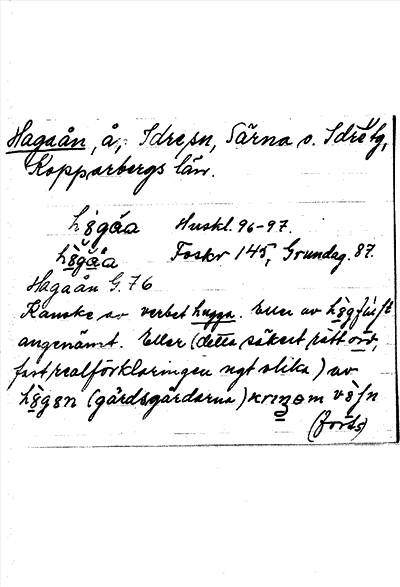 Hagaån, å, Idre sn, Särna o. Idre tg,
Kopparbergs län.
hə̀gå̄a Huskl. 96-97.
Foskr 145, Grundag. 87.
Hagaån G. 76
Kanske av verbet hugga. Eller av
angenämt. Eller (detta säkert rätt ord,
fast realförklaringen ngt olika) av
(gärdsgårdarna)
(forts)